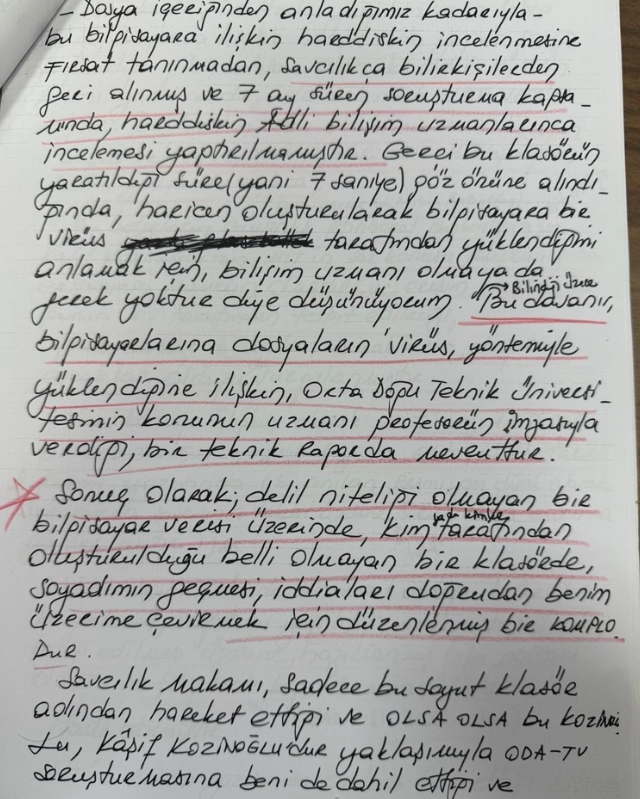 - Dosya içeriğinden anladığımız kadarıyla -
bu bilgisayara ilişkin harddiskin incelenmesine
Fırsat tanınmadan, savcılıkça bilirkişilerden
geri alınmış ve 7 ay süren soruşturma kapsa-
mında, harddiskin Adli bilişim uzmanlarınca
incelemesi yaptırılmamıştır. Gerçi bu klasörün
yaratıldığı süre (yani 7 saniye) göz önüne alındı-
ğında, haricen oluşturularak bilgisayara bir
virüs tarafından yüklendiğini
anlamak için, bilişim uzmanı olmaya da
gerek yoktur diye düşünüyorum. Bilindiği üzere
Bu davanın,
bilgisayarlarına dosyaların virüs, yöntemiyle
yüklendiğine ilişkin, Orta Doğu Teknik Üniversi-
tesinin konunun uzmanı profesörün imzasıyla
verdiği, bir teknik Raporda mevcuttur.
Sonuç olarak; delil niteliği olmayan bir
bilgisayar verisi üzerinde, kim ya da kimler tarafından
oluşturulduğu belli olmayan bir klasörde,
soyadımın geçmesi, iddiaları doğrudan benim
üzerime çevirmek için düzenlenmiş bir KOMPLO
DUR.
Savcılık Makamı, sadece bu soyut klasör
adından hareket ettiği ve OLSA OLSA bu KOZİNOĞ
LU, Kâşif KOZİNOĞLU'dur yaklaşımıyla ODA-TV
soruşturmasına beni de dahil ettiği ve